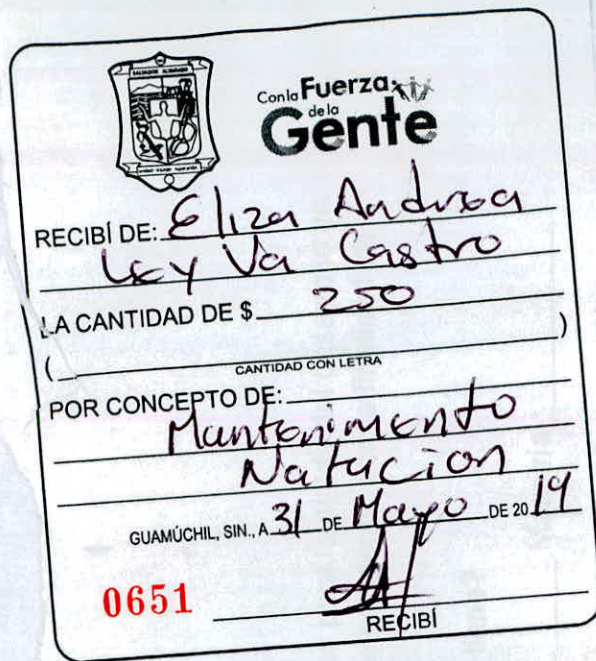 SALVADOR ALVARADO
Con la Fuerza
de la
Gente
RECIBÍ DE: Eliza Andrea
Leyva Castro
LA CANTIDAD DE $ 250
( )
CANTIDAD CON LETRA
POR CONCEPTO DE:
Mantenimento
Natacion
GUAMÚCHIL, SIN., A 31 DE Mayo DE 2019
0651
RECIBÍ